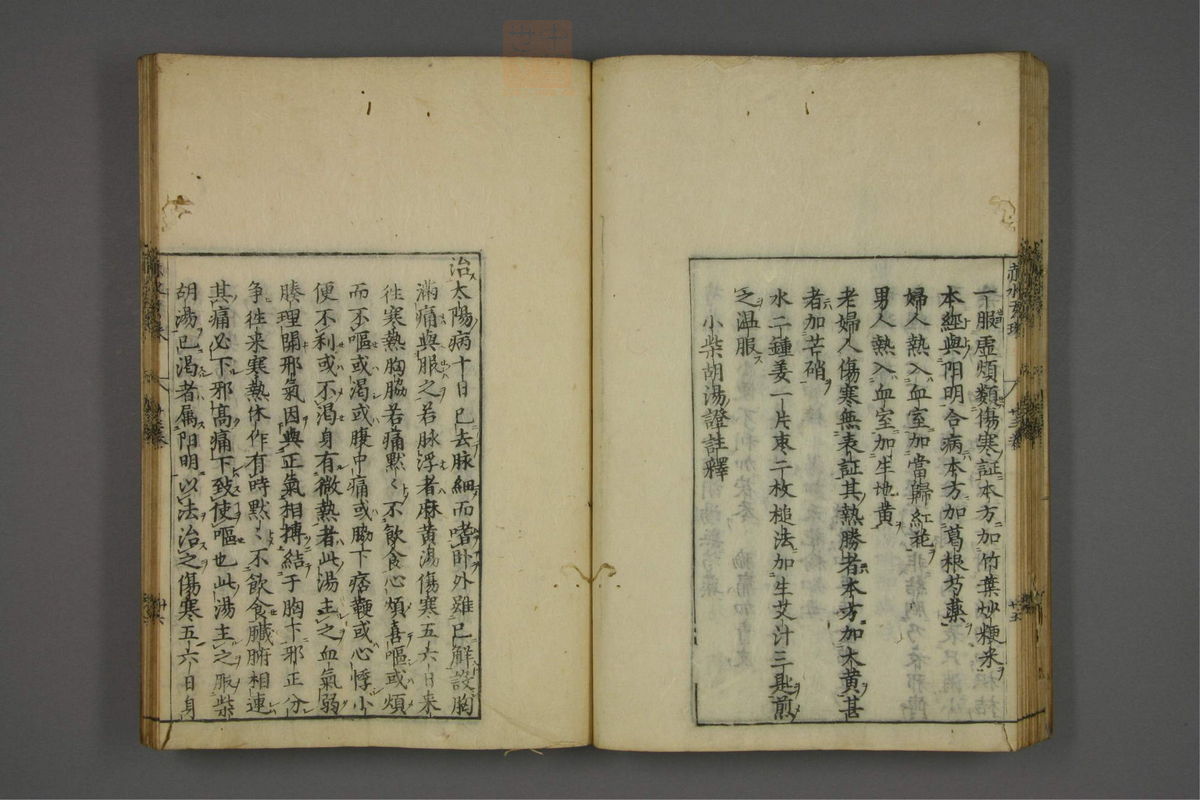 一服虛煩類傷寒証本方加竹葉炒粳米
本經與阳明合病本方加葛根芍藥
婦人熱入血室加當歸紅花
男人熱入血室加生地黄
老婦人傷寒無表証其熱勝者本方加大黄甚
者加芒硝
水二鍾姜一片枣二枚槌法加生艾汁三匙煎
之温服
小柴胡湯證註釋
治太陽病十日已去脉細而嗜卧外雖已解設胸
滿痛與服之若脉浮者麻黄湯傷寒五六日来
徃寒熱胸脇若痛黙〻不飲食心煩喜嘔或煩
而不嘔或渴或腹中痛或脇下痞鞕或心悸小
便不利或不渴身有微熱者此湯主之血氣弱
腠理開邪氣因與正氣相搏結于胸下邪正分
争徃来寒熱休作有時黙〻不飲食臓腑相連
其痛必下邪髙痛下致使嘔也此湯主之服柴
胡湯已渴者属阳明以法治之傷寒五六日身